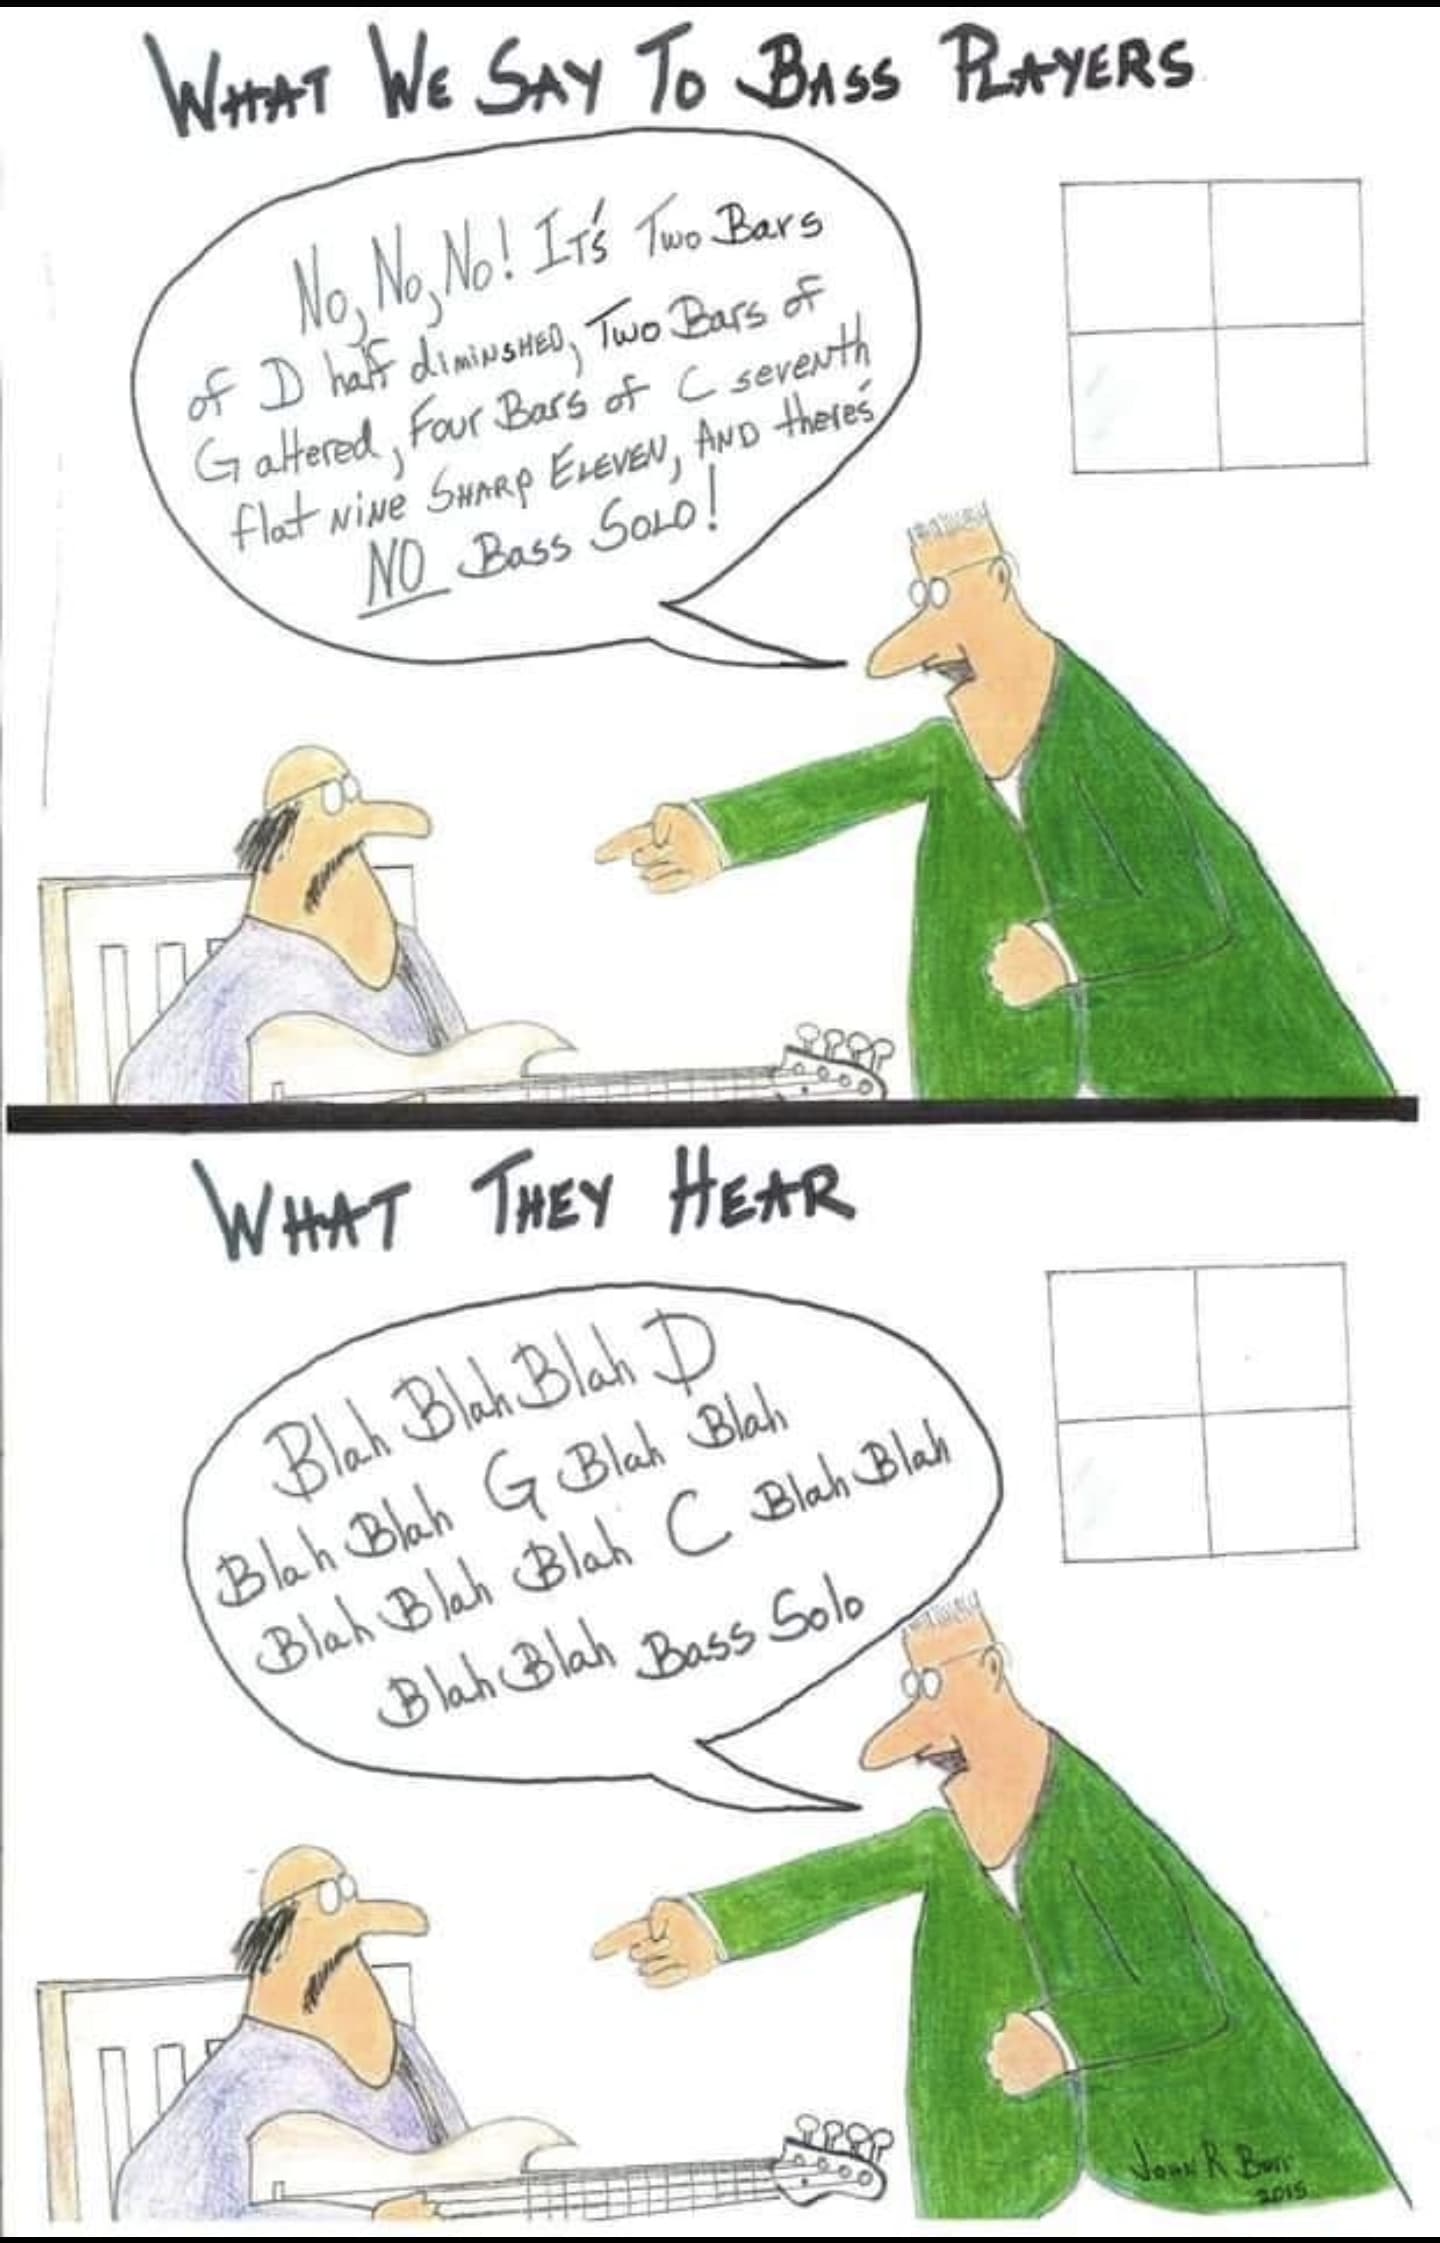 WHAT WE SAY TO BASS PLAYERS
No, No, No! IT'S Two Bars
of D half diminSHED, Two Bars of
G altered, Four Bars of C seventh
flat NiNe SHARP ELEVEN, AND there's
NO Bass SOLO!
WHAT THEY HEAR
Blah Blah Blah D
Blah Blah G Blah Blah
Blah Blah Blah C Blah Blah
Blah Blah Bass Solo
JOHN R
2015